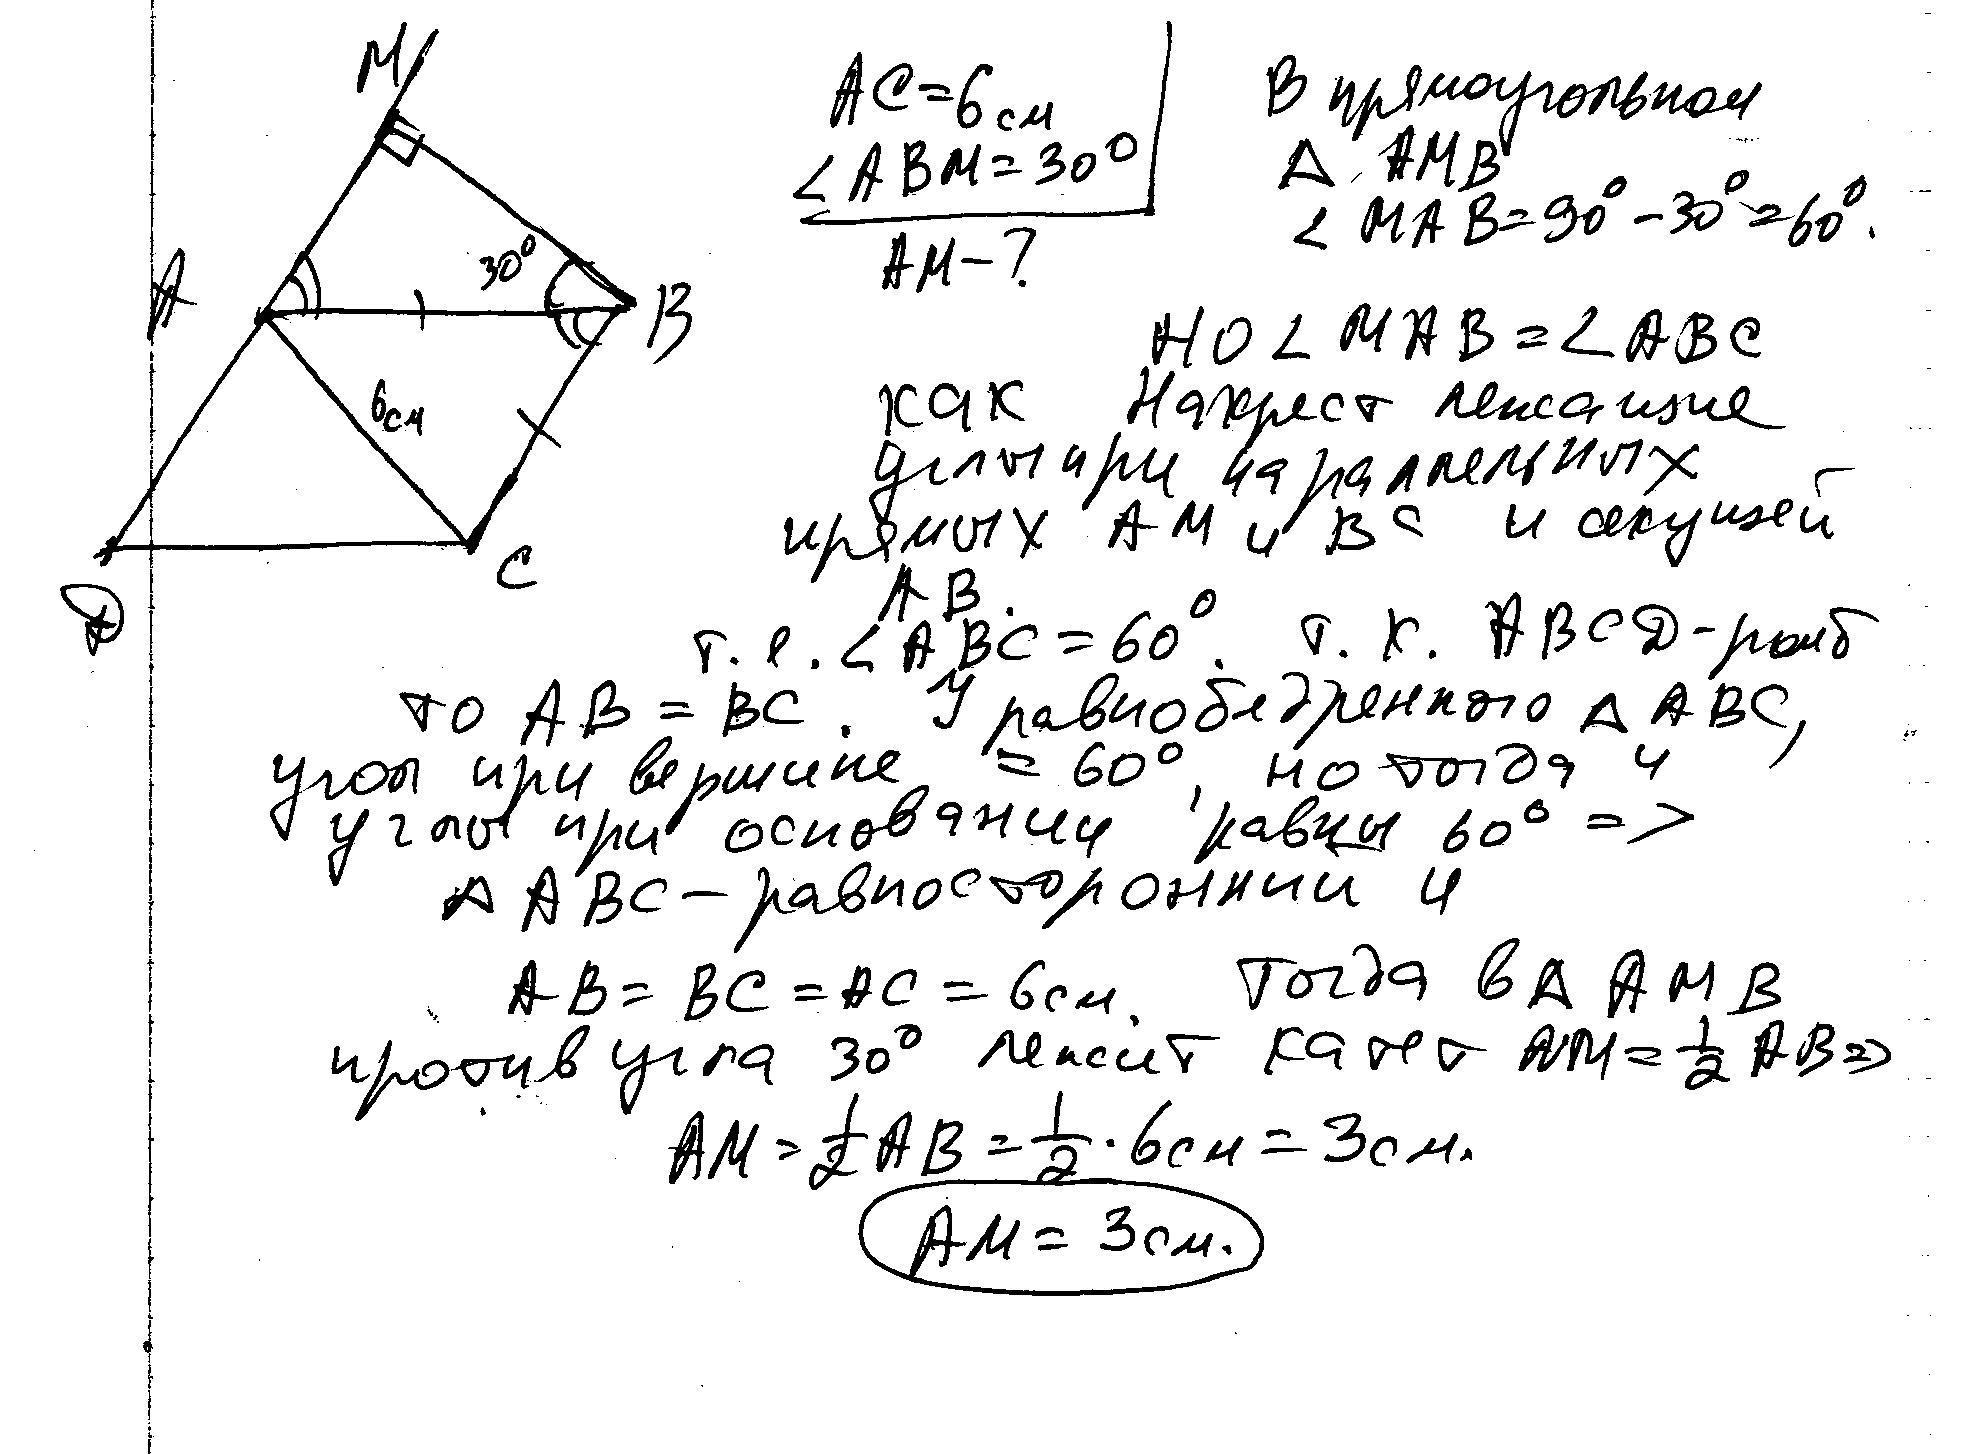 M
A
B
C
D
30°
6см
AC=6см
<ABM=30°
AM-?
В прямоугольном
△ AMB
< MAB=90°-30°=60°.
НО < MAB=<ABC
как Накрест лежащие
углы при параллельных
прямых AM и BC и секущей
AB.
т.е.<ABC=60°. т.к. ABCD-ромб
то AB=BC. У равнобедренного △ABC,
угол при вершине =60°, но тогда и
углы при основании равны 60° =>
△ABC-равносторонний и
AB=BC=AC=6см. Тогда в△ AMB
против угла 30° лежит катет AM=1/2 AB=>
AM=1/2AB=1/2·6см=3см.
AM=3см.